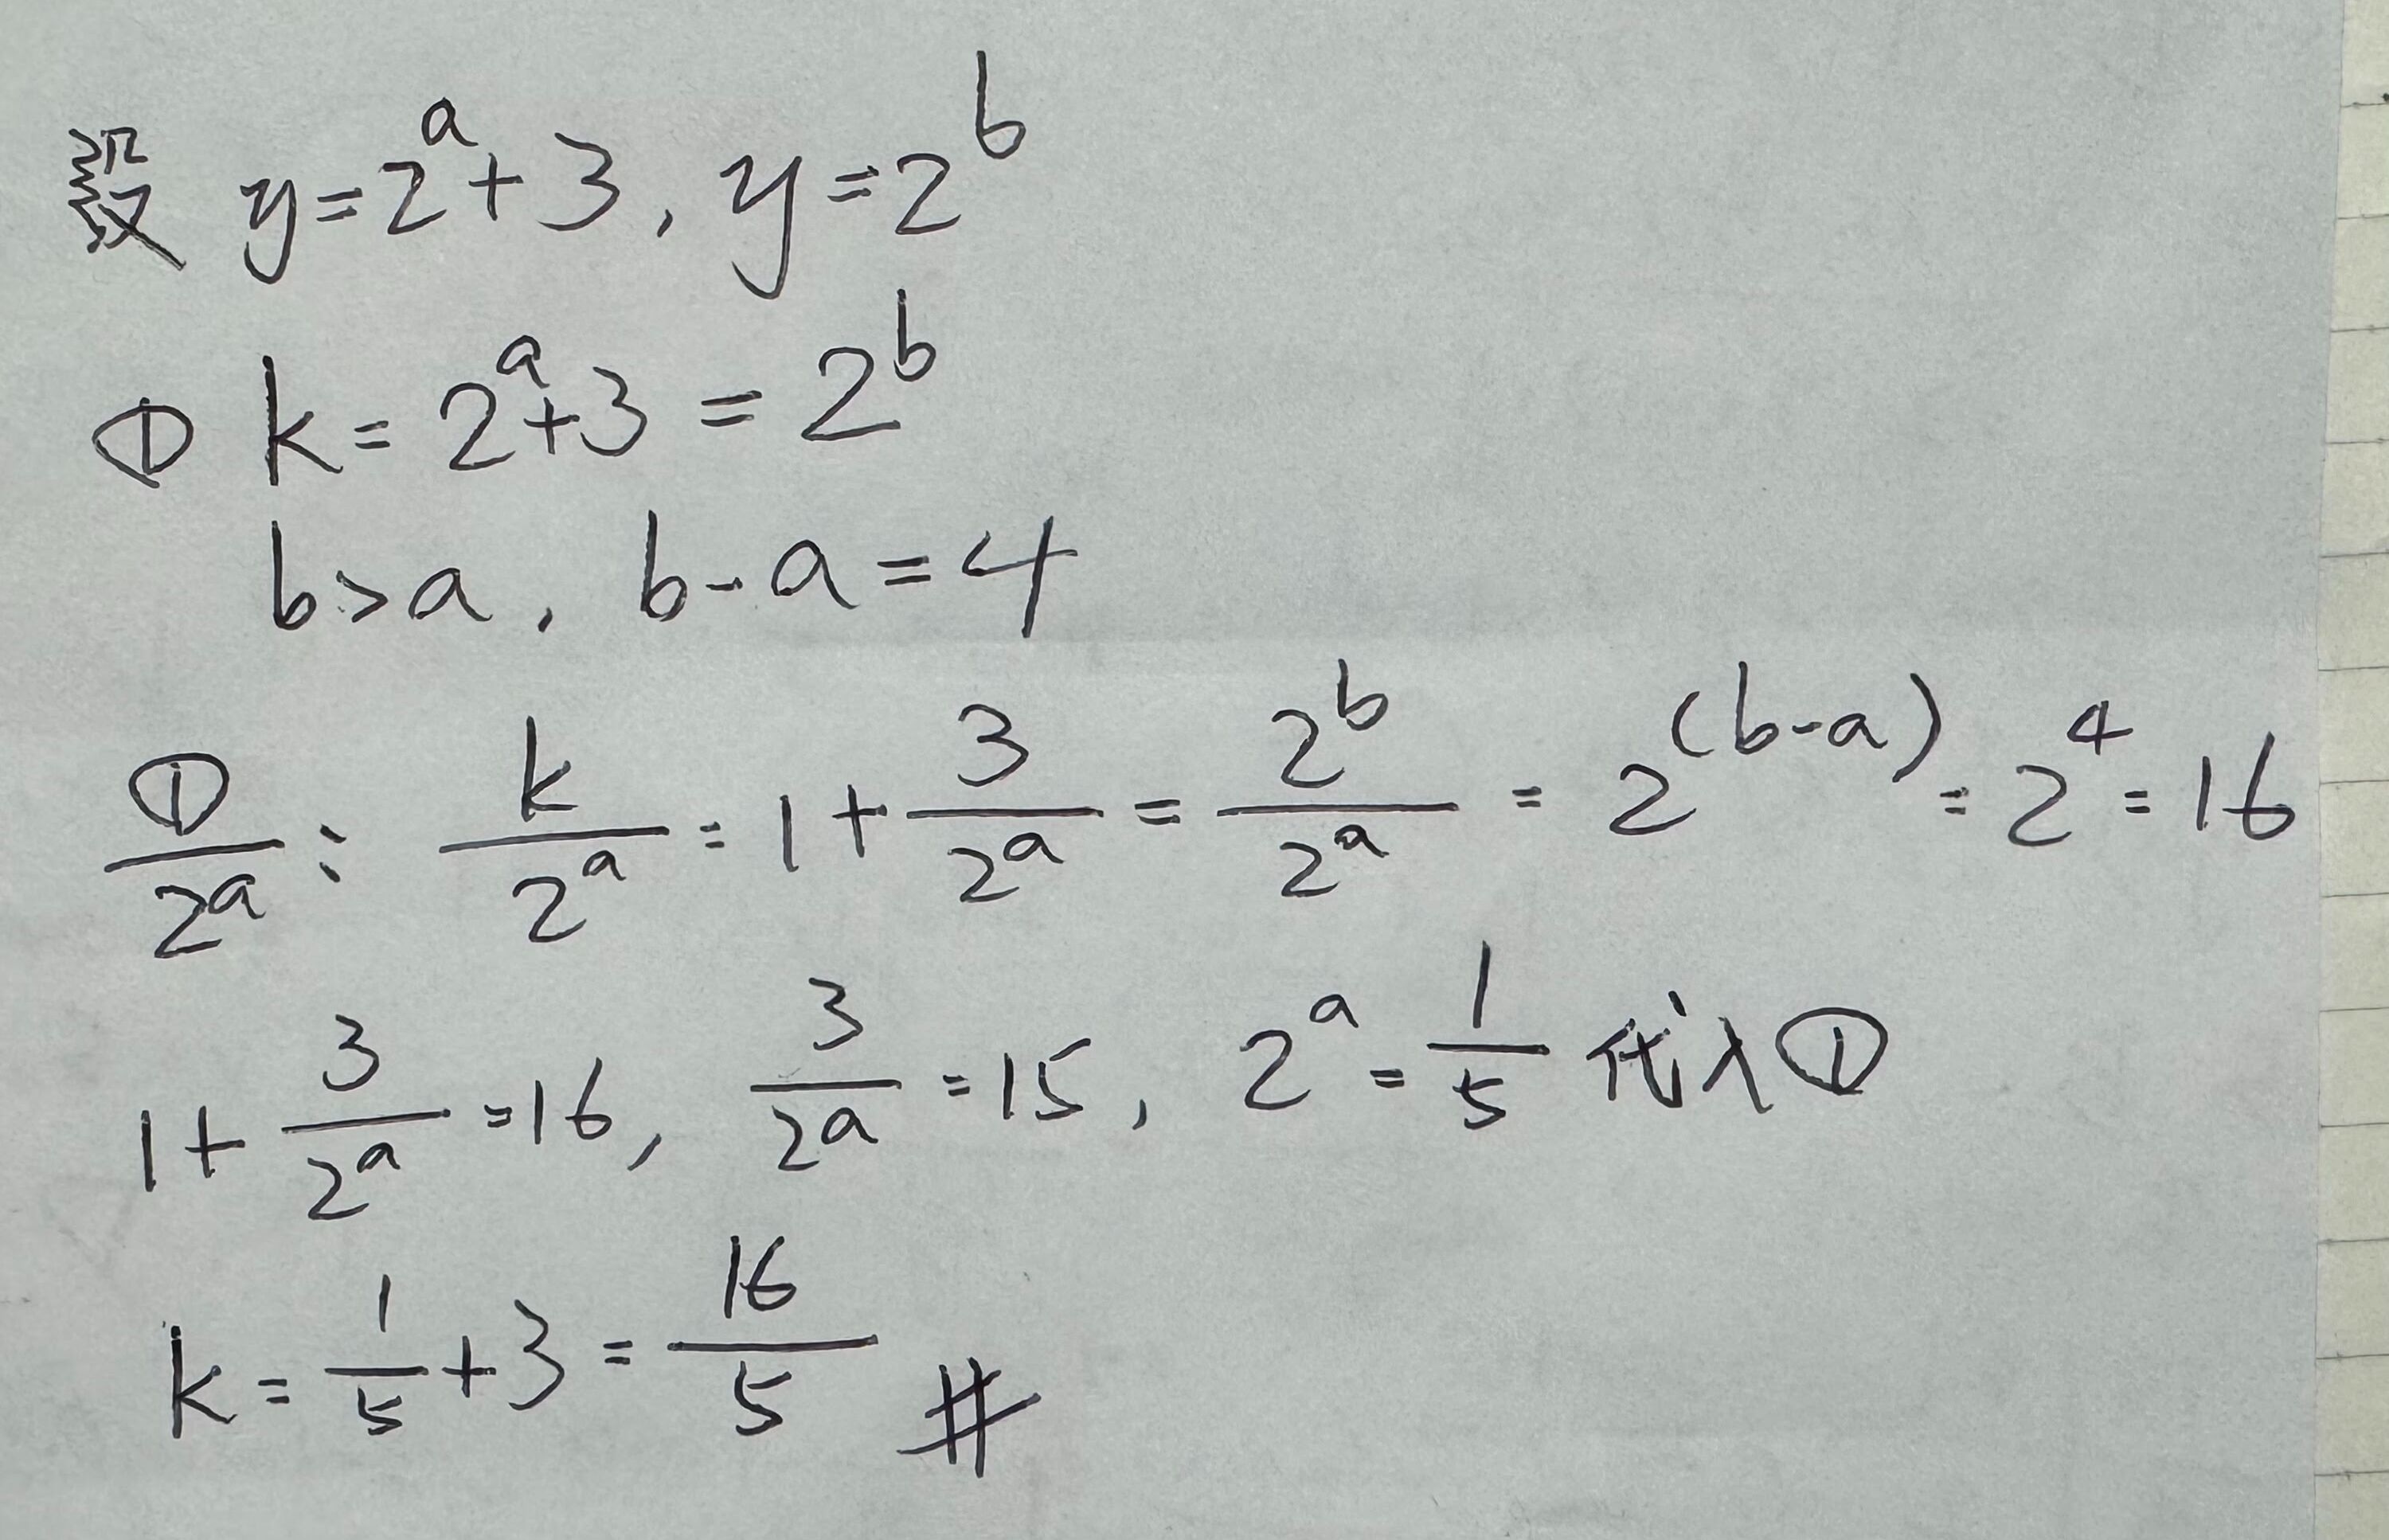 設 y=2^a+3, y=2^b
① k=2^a+3=2^b
b>a, b-a=4
①/2^a: k/2^a=1+3/2^a=2^b/2^a=2^(b-a)=2^4=16
1+3/2^a=16, 3/2^a=15, 2^a=1/5 代入①
k=1/5+3=16/5 #